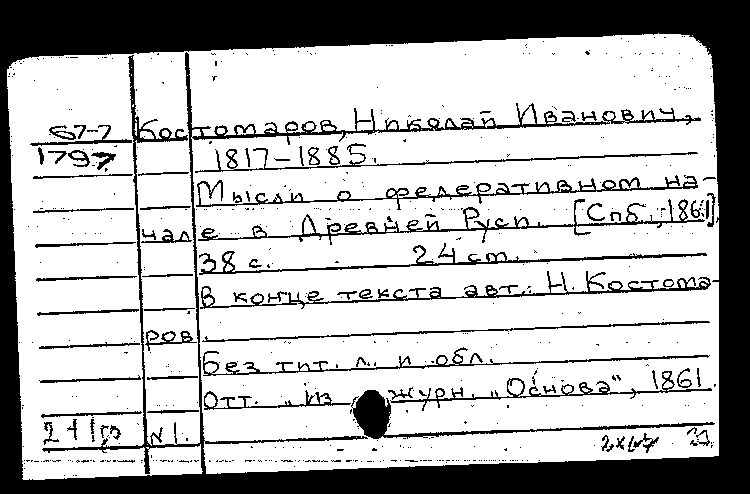 67-7 Костомаров, Николай Иванович,
1797 1817-1885.
Мысли о федеративном на-
чале в Древней Руси. [Спб., 1861].
38 с. 24 cm.
В конце текста авт.: Н. Костома-
ров.
Без тит. л. и обл.
Отт. „из журн. „Основа", 1861
N 1.